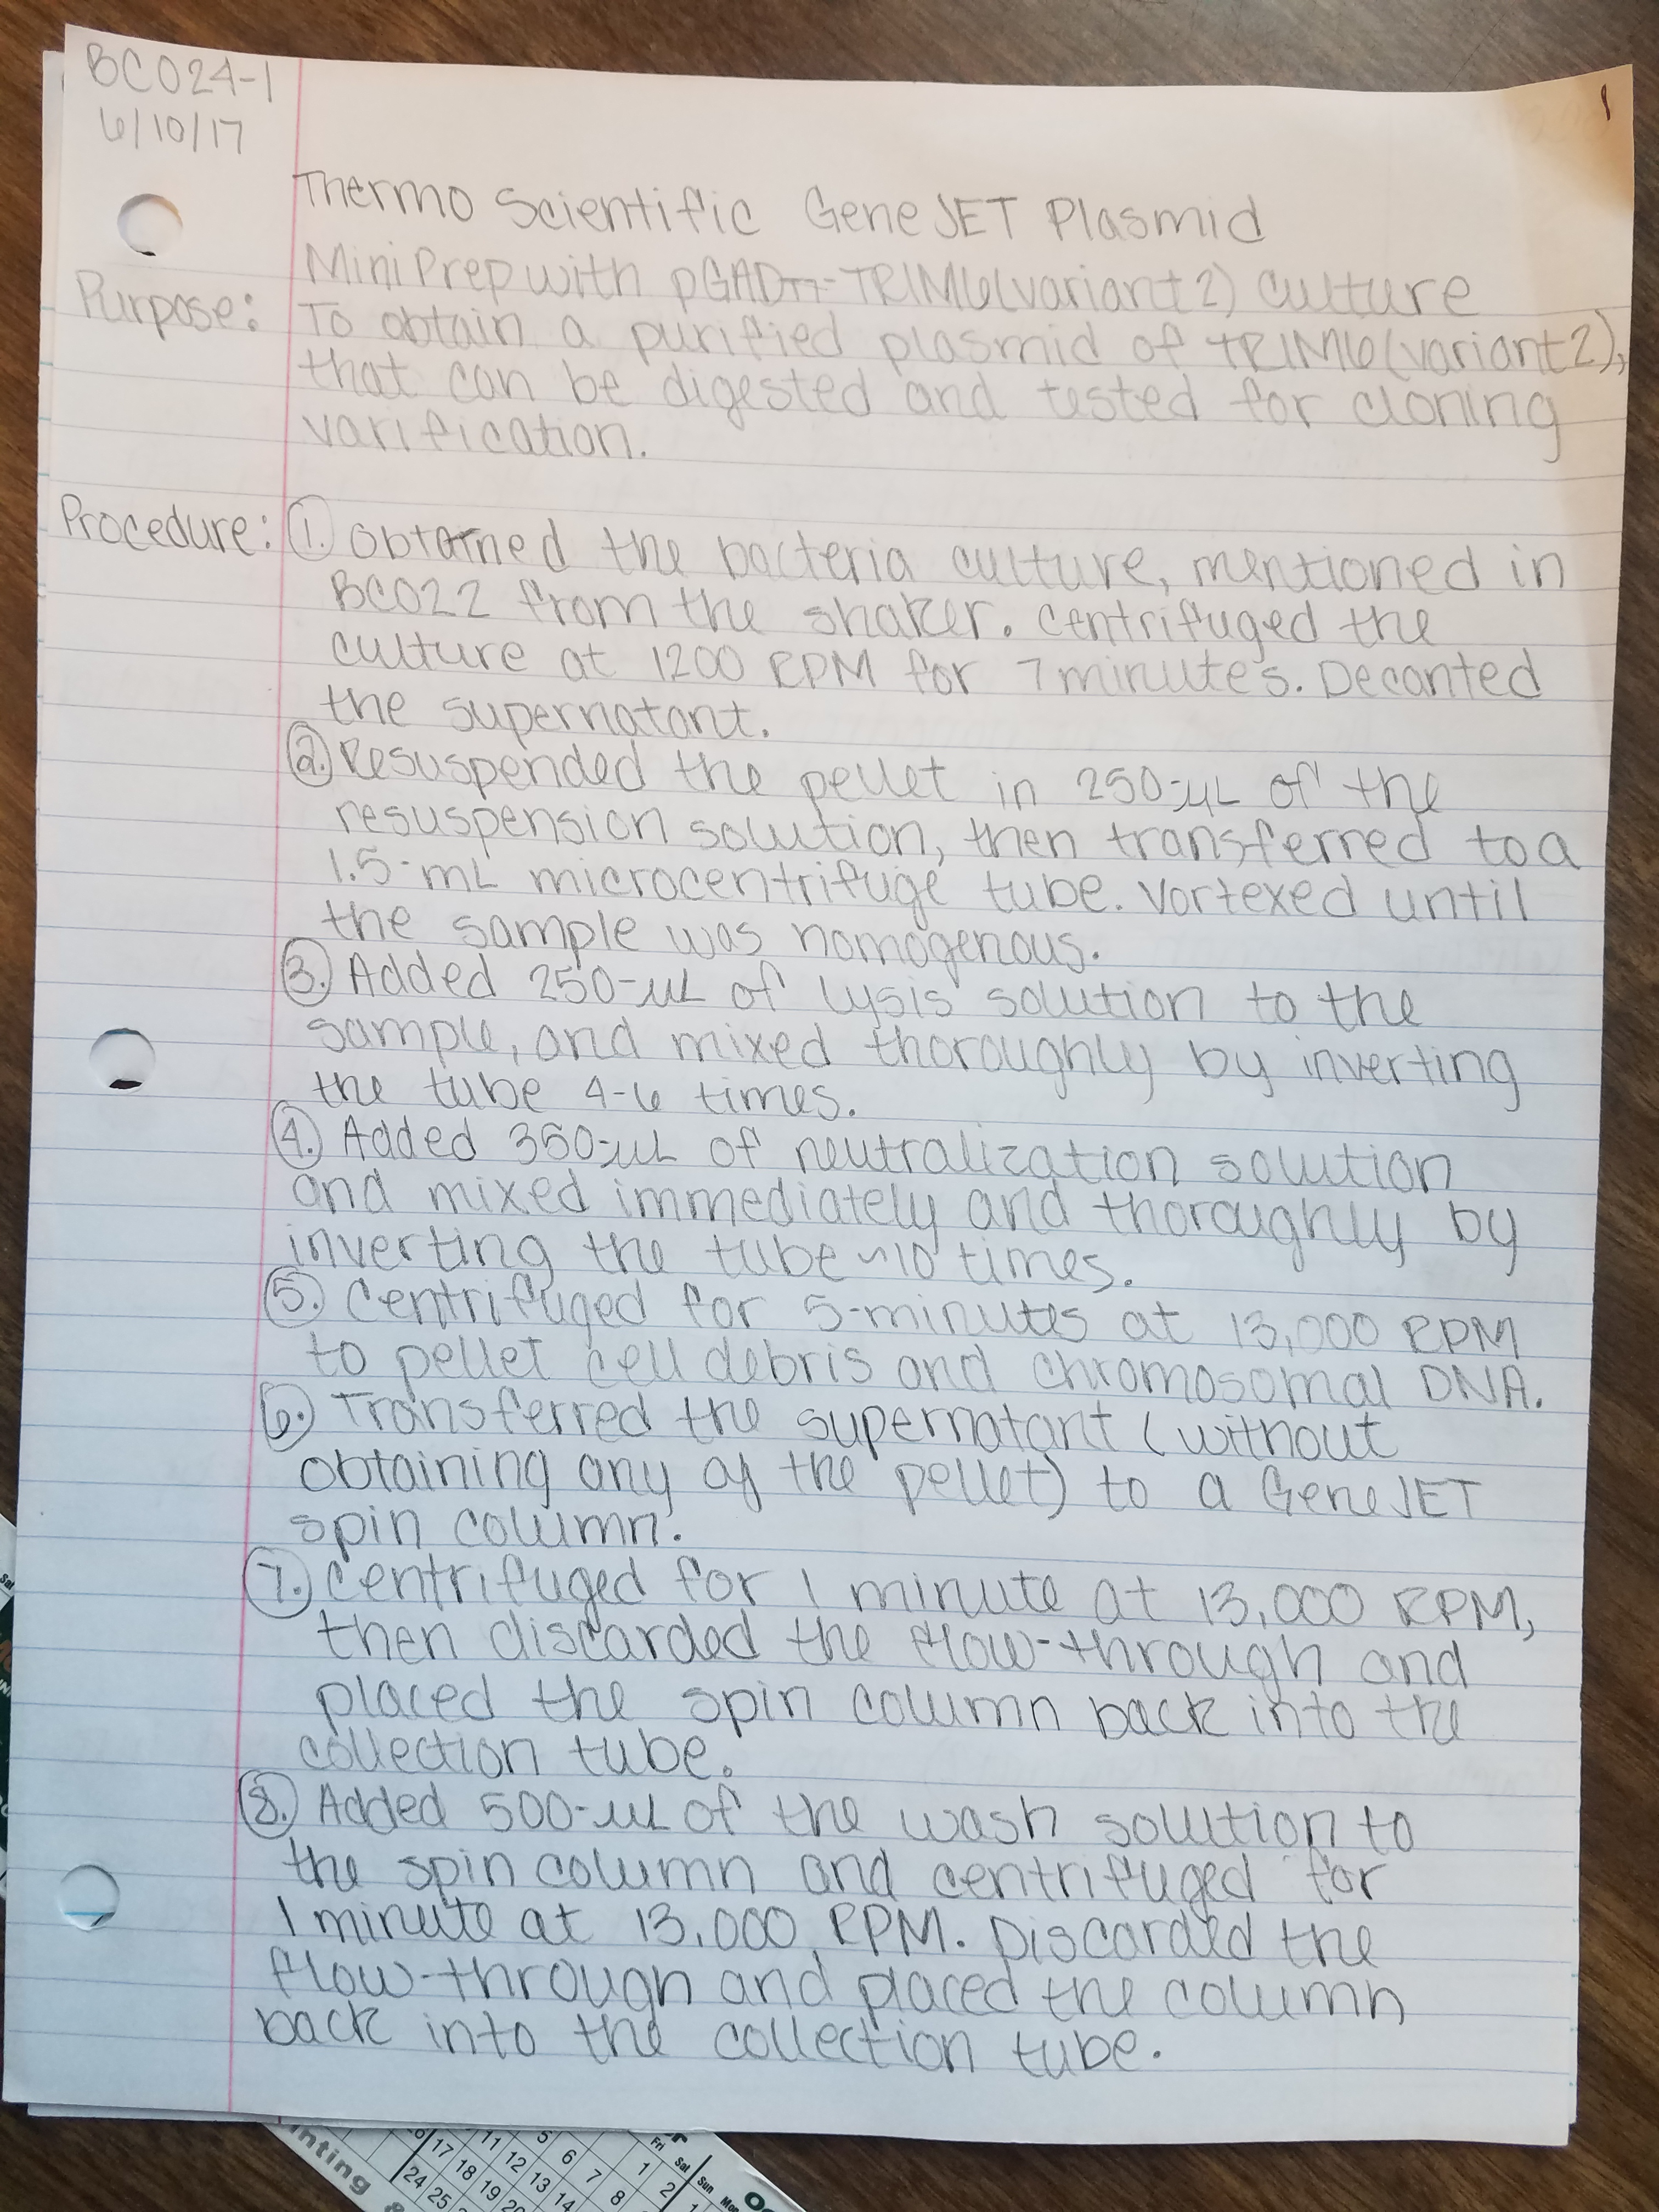 BC024-1
6/10/17
1
Thermo Scientific GeneJET Plasmid
MiniPrep with pGADT7-TRIM6(variant 2) culture
Purpose: To obtain a purified plasmid of TRIM6(variant 2),
that can be digested and tested for cloning
varification.
Procedure: 1. Obtained the bacteria culture, mentioned in
BC022 from the shaker. Centrifuged the
culture at 1200 RPM for 7 minutes. Decanted
the supernatant.
2. Resuspended the pellet in 250-μL of the
resuspension solution, then transferred to a
1.5-mL microcentrifuge tube. Vortexed until
the sample was homogenous.
3. Added 250-μL of lysis solution to the
sample, and mixed thoroughly by inverting
the tube 4-6 times.
4. Added 350-μL of neutralization solution
and mixed immediately and thoroughly by
inverting the tube ~10 times.
5. Centrifuged for 5-minutes at 13,000 RPM
to pellet cell debris and chromosomal DNA.
6. Transferred the supernatant (without
obtaining any of the pellet) to a GeneJET
spin column.
7. Centrifuged for 1 minute at 13,000 RPM,
then discarded the flow-through and
placed the spin column back into the
collection tube.
8. Added 500-μL of the wash solution to
the spin column and centrifuged for
1 minute at 13,000 RPM. Discarded the
flow-through and placed the column
back into the collection tube.
nting &
Fri Sat Sun
5 6 7 8
1 2
11 12 13 14
17 18 19 20
24 25